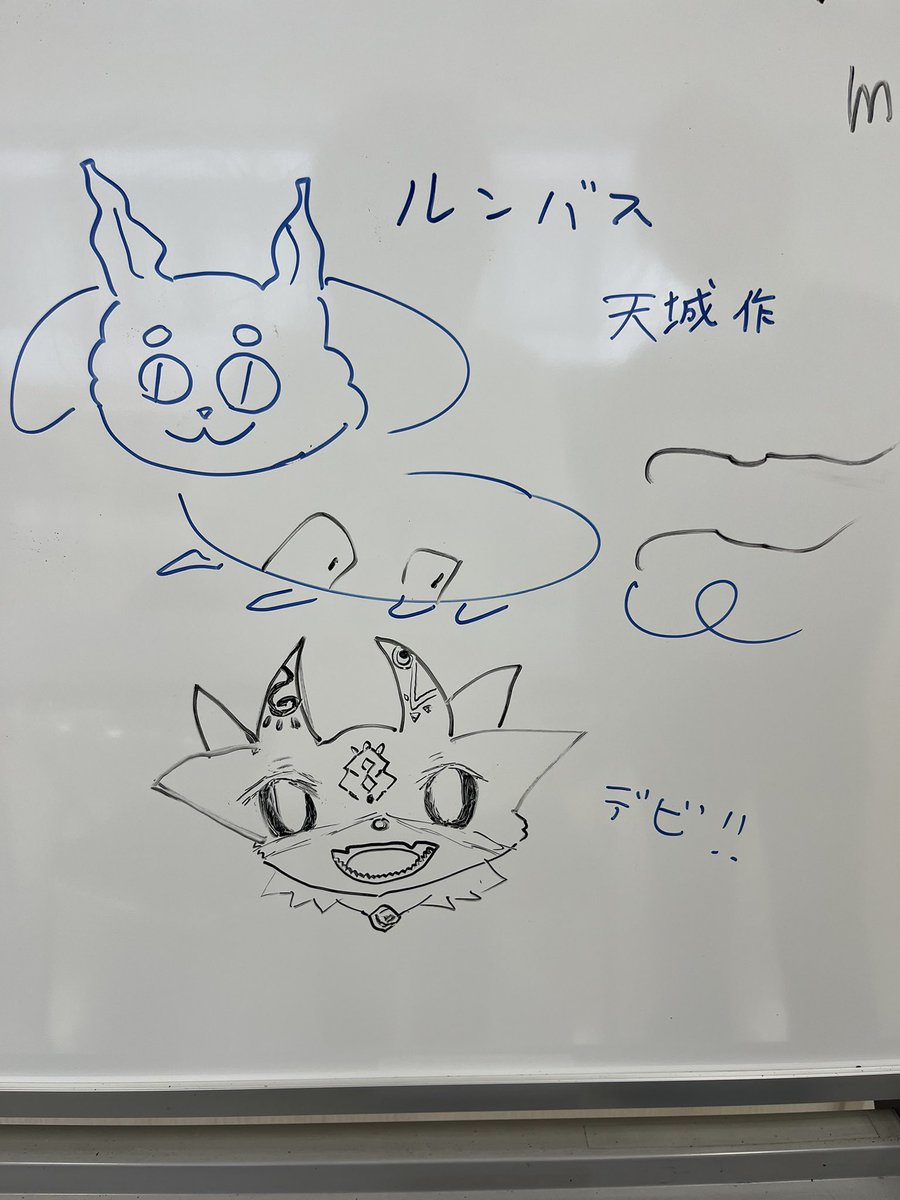 m
ルンバス
天城作
デビ!!